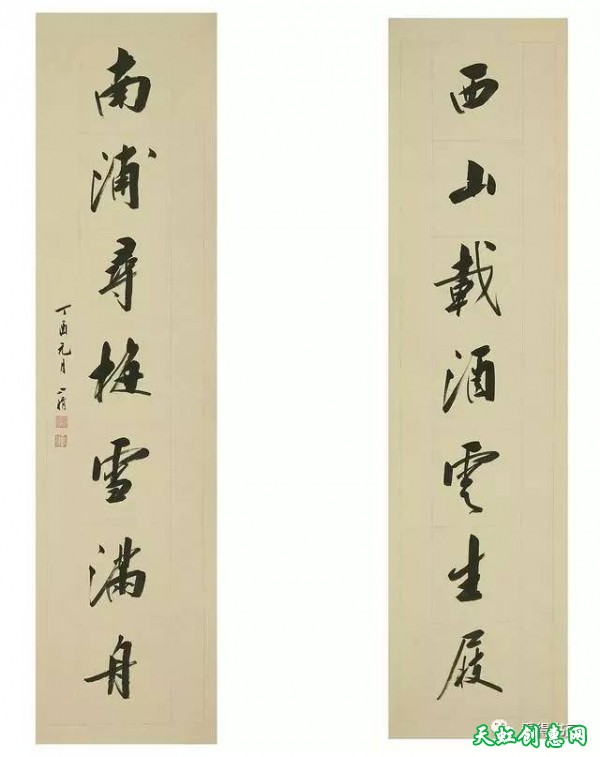 西山載酒雲生屐
南浦尋梅雪滿舟
丁酉元月
天虹创惠网